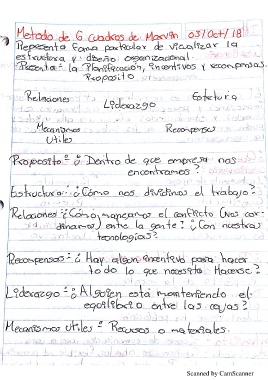 Metodo de 6 cuadros de Marvin 03/Oct/18
Representa forma particular de visualizar la
estructura y diseño organizacional.
Presenta: la Planificación, incentivos y recompensas.
Proposito
Relaciones Estrctura
Liderazgo
Mecanismos Recompensas
Utiles
Proposito: ¿Dentro de que empresa nos
encontramos?
Estructura: ¿Cómo nos dividimos el trabajo?
Relaciones: ¿Cómo manejamos el conflicto (nos cor
dinamos) entre la gente? ¿Con nuestras
tecnologias?
Recompensas: ¿Hay algun incentivo para hacer
todo lo que necesita Hacerse?
Liderazgo: ¿Alguien está manteniendo el
equilibrio entre las cajas?
Mecanismos Utiles: Recursos o materiales.
Scanned by CamScanner